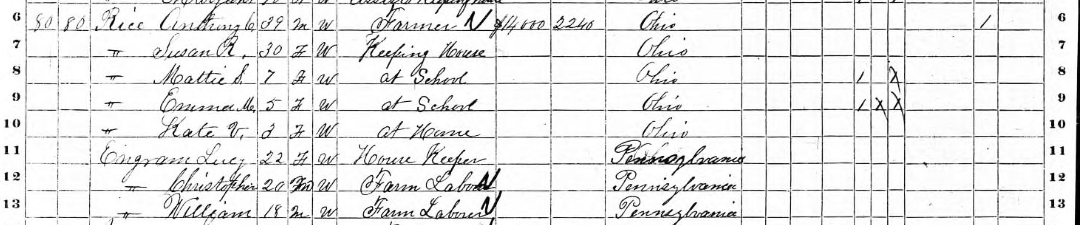 6 80 80 Rice Anthony C 39 M W Farmer N $14,000 2240 Ohio 1 6
7 " Susan R. 30 F W Keeping House Ohio 7
8 " Mattie S. 7 F W at School Ohio 1 X 8
9 " Emma M. 5 F W at School Ohio 1 X X 9
10 " Kate V. 3 F W at Home Ohio 10
11 Engram Lucy 22 F W House Keeper Pennsylvania 11
12 " Christopher 20 M W Farm Laborer N Pennsylvania 12
13 " William 18 M W Farm Laborer N Pennsylvania 13